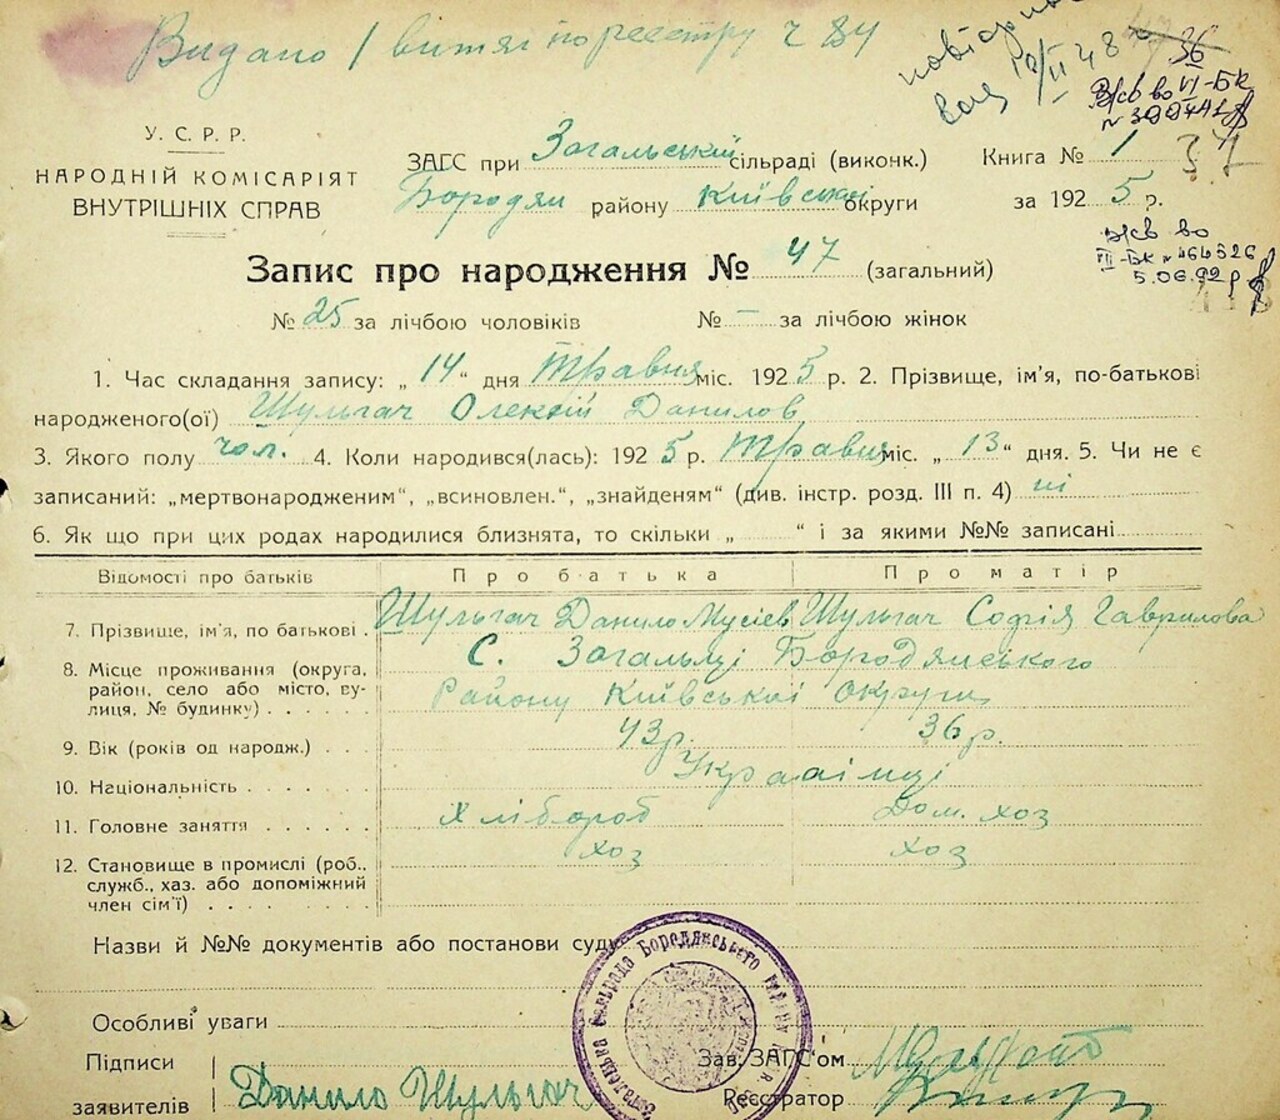 Видано 1 витяг по реєстру ч 84
повторно
10/II 48
36
Жсв во VI-БК
У. С. Р. Р.
НАРОДНІЙ КОМІСАРІЯТ
ВНУТРІШНІХ СПРАВ
ЗАГС при Загальській сільраді (виконк.) Книга № 1 37
Бородян району Київської округи за 1925 р.
жсв во
III-БК № 464526
5.06.92 р
Запис про народження № 47 (загальний)
№ 25 за лічбою чоловіків № — за лічбою жінок
1. Час складання запису: „14“ дня Травня міс. 1925 р. 2. Прізвище, ім'я, по-батькові
народженого(ої) Шульгач Олексій Данилов
3. Якого полу чол. 4. Коли народився(лась): 1925 р. Травня міс. „13“ дня. 5. Чи не є
записаний: „мертвонародженим“, „всиновлен.“, „знайденям“ (див. інстр. розд. III п. 4) ні
6. Як що при цих родах народилися близнята, то скільки „ “ і за якими №№ записані
Відомості про батьків Про батька Про матір
7. Прізвище, ім'я, по батькові . Шульгач Данило Мусієв Шульгач Софія Гаврилова
8. Місце проживання (округа, район, село або місто, ву-лиця, № будинку) . . . . . . С. Загальці Бородянського
Району Київської Округи
9. Вік (років од народж.) . . . 43 р. 36 р.
10. Національність . . . . . . . Українці
11. Головне заняття . . . . . . Хлібороб Дом. хоз
12. Становище в промислі (роб., служб., хаз. або допоміжний член сім'ї) . . . . . . . . хоз хоз
Назви й №№ документів або постанови суду
Особливі уваги
Підписи
заявителів Данило Шульгач
Зав. ЗАГС'ом
Реєстратор
Сільрада Бородянського району